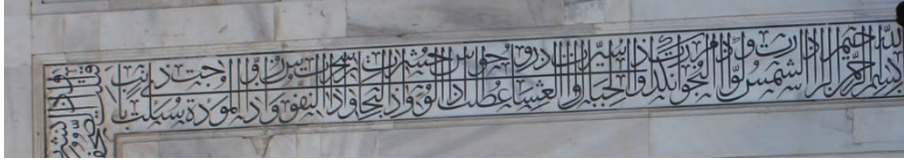 بسم الله الرحمن الرحيم اذا الشمس كورت واذا النجوم انكدرت واذا الجبال سيرت واذا العشار عطلت واذا الوحوش حشرت واذا البحار سجرت واذا النفوس زوجت واذا الموءدة سئلت باي ذنب
قتلت واذا الصحف نشرت